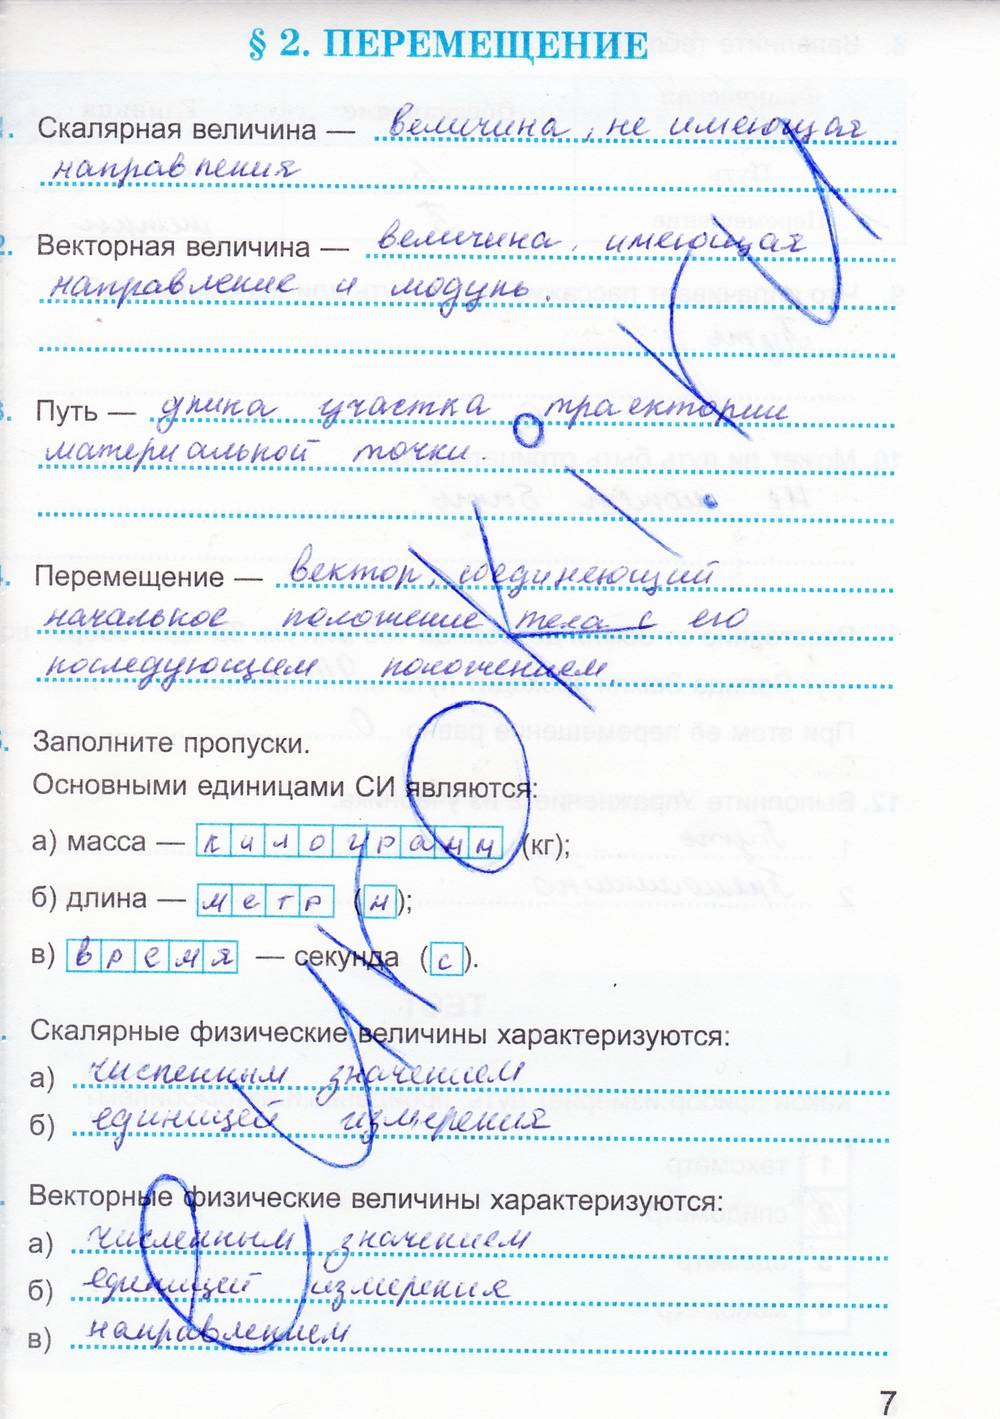 § 2. ПЕРЕМЕЩЕНИЕ
1. Скалярная величина — величина, не имеющая
направления
2. Векторная величина — величина, имеющая
направление и модуль.
3. Путь — длина участка траектории
материальной точки
4. Перемещение — вектор, соединяющий
начальное положение тела с его
последующим положением.
Заполните пропуски.
Основными единицами СИ являются:
а) масса — килограмм (кг);
б) длина — метр (м);
в) время — секунда (с).
Скалярные физические величины характеризуются:
а) численным значением
б) единицей измерения
Векторные физические величины характеризуются:
а) численным значением
б) единицей измерения
в) направлением
7